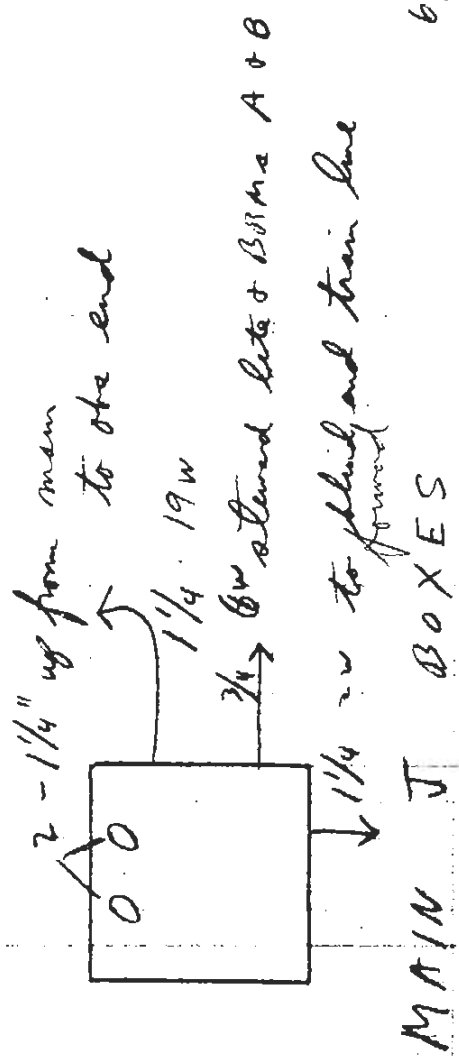 2 - 1 1/4" up from main
to obs end
1 1/4 19 W
3/4 6W steward lite & BDRMs A & B
1 1/4 W to blind end train line
forward
MAIN J BOXES
6